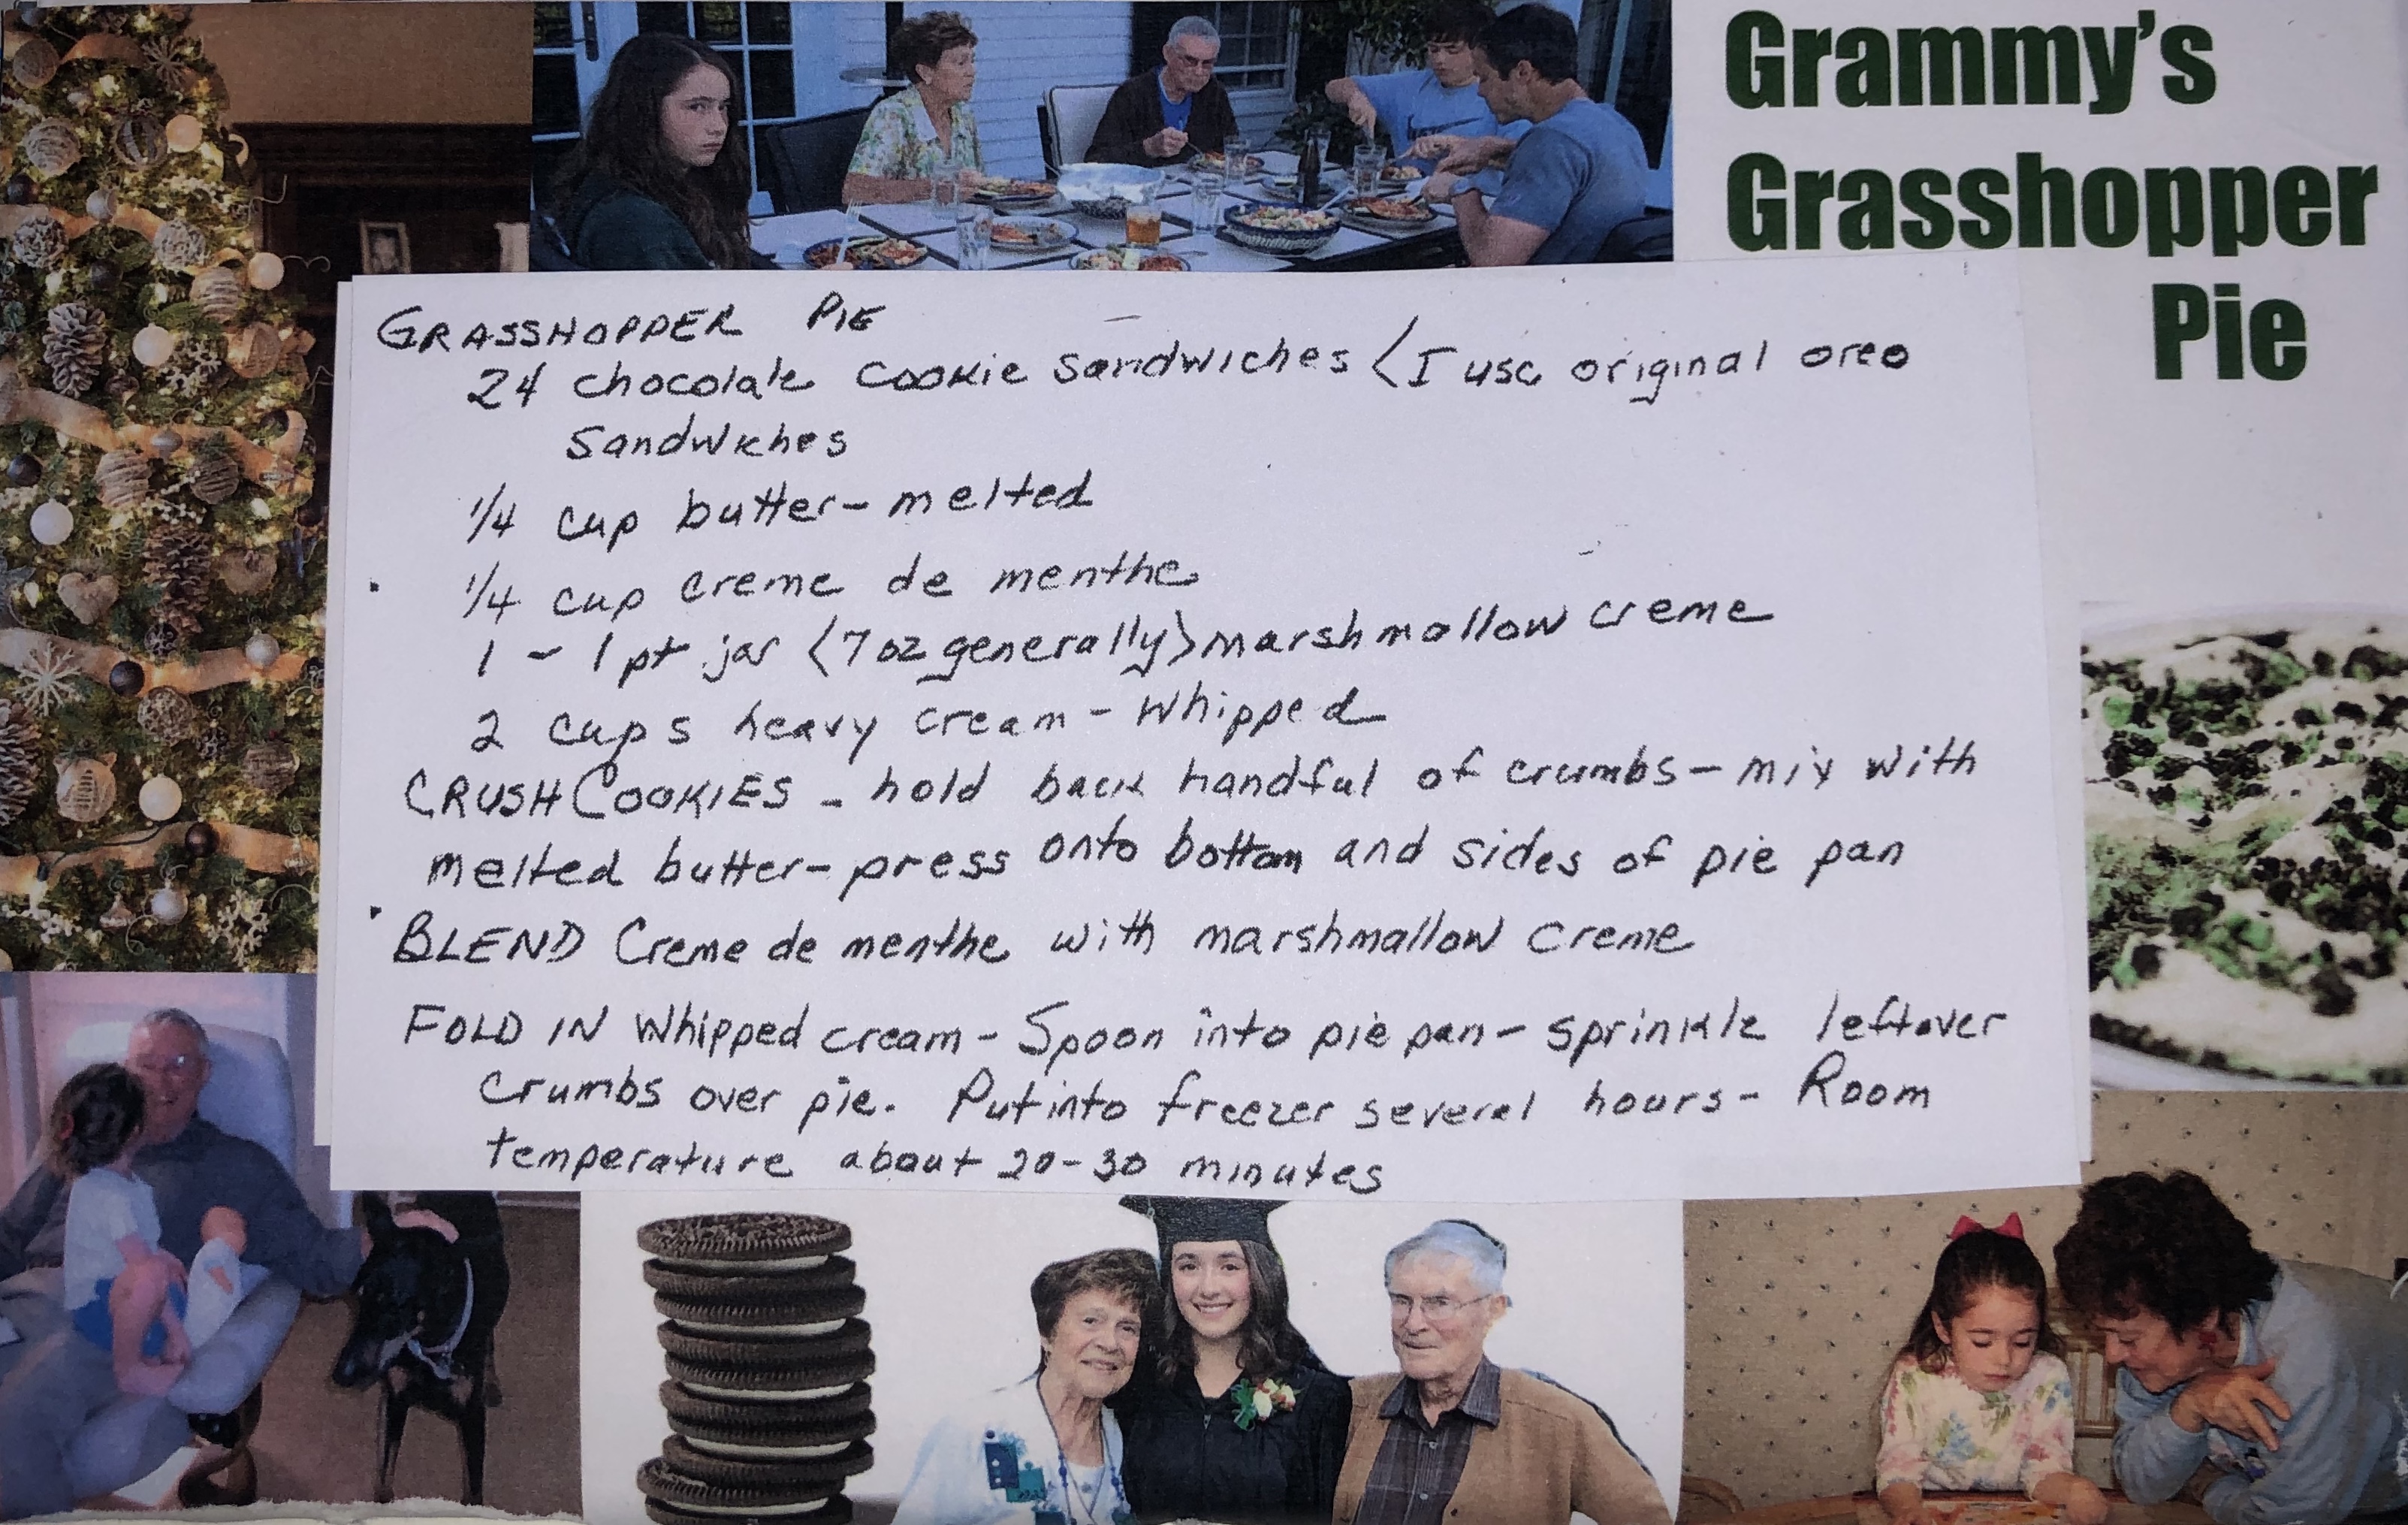 Grammy's
Grasshopper
Pie
GRASSHOPPER PIE
24 chocolate cookie sandwiches <I use original oreo
sandwiches
1/4 cup butter - melted
1/4 cup creme de menthe
1 - 1 pt jar <7 oz generally> marshmallow creme
2 cups heavy cream - whipped
CRUSH COOKIES - hold back handful of crumbs - mix with
melted butter - press onto bottom and sides of pie pan
BLEND Creme de menthe with marshmallow creme
FOLD IN whipped cream - Spoon into pie pan - sprinkle leftover
crumbs over pie. Put into freezer several hours - Room
temperature about 20-30 minutes